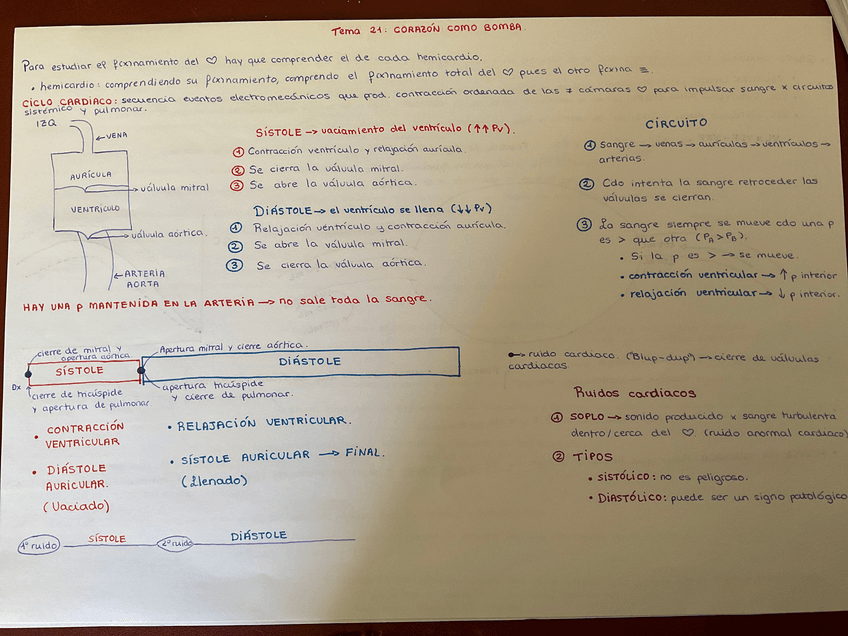 Tema 21: CORAZÓN COMO BOMBA
Para estudiar el fxxnamiento del ♡ hay que comprender el de cada hemicardio.
• hemicardio: comprendiendo su fxxnamiento, comprendo el fxxnamiento total del ♡ pues el otro fxxna ≡.
CICLO CARDIACO: secuencia eventos electromecánicos que prod. contracción ordenada de las ≠ cámaras ♡ para impulsar sangre x circuitos
sistémico y pulmonar.
IZQ
← VENA
AURÍCULA
→ válvula mitral
VENTRÍCULO
→ válvula aórtica.
← ARTERIA
AORTA
SÍSTOLE → vaciamiento del ventrículo (↑↑ Pv).
① Contracción ventrículo y relajación aurícula.
② Se cierra la válvula mitral.
③ Se abre la válvula aórtica.
DIÁSTOLE → el ventrículo se llena (↓↓ Pv)
① Relajación ventrículo y contracción aurícula.
② Se abre la válvula mitral.
③ Se cierra la válvula aórtica.
CIRCUITO
① Sangre → venas → aurículas → ventrículos →
arterias.
② Cdo intenta la sangre retroceder las
válvulas se cierran.
③ La sangre siempre se mueve cdo una p
es > que otra (PA > PB).
• Si la p es > → se mueve.
• contracción ventricular → ↑ p interior
• relajación ventricular → ↓ p interior.
HAY UNA p MANTENIDA EN LA ARTERIA → no sale toda la sangre.
cierre de mitral y
apertura aórtica.
Apertura mitral y cierre aórtica.
SÍSTOLE
DIÁSTOLE
Dx
cierre de tricúspide
y apertura de pulmonar.
apertura tricúspide
y cierre de pulmonar.
• CONTRACCIÓN
VENTRICULAR
• DIÁSTOLE
AURICULAR.
(Vaciado)
• RELAJACIÓN VENTRICULAR.
• SÍSTOLE AURICULAR → FINAL.
(Llenado)
1º ruido
SÍSTOLE
2º ruido
DIÁSTOLE
→ ruido cardiaco. ("Blup-dup") → cierre de válvulas
cardiacas
Ruidos cardiacos
① SOPLO → sonido producido x sangre turbulenta
dentro/cerca del ♡. (ruido anormal cardiaco)
② TIPOS
• SISTÓLICO: no es peligroso.
• DIASTÓLICO: puede ser un signo patológico